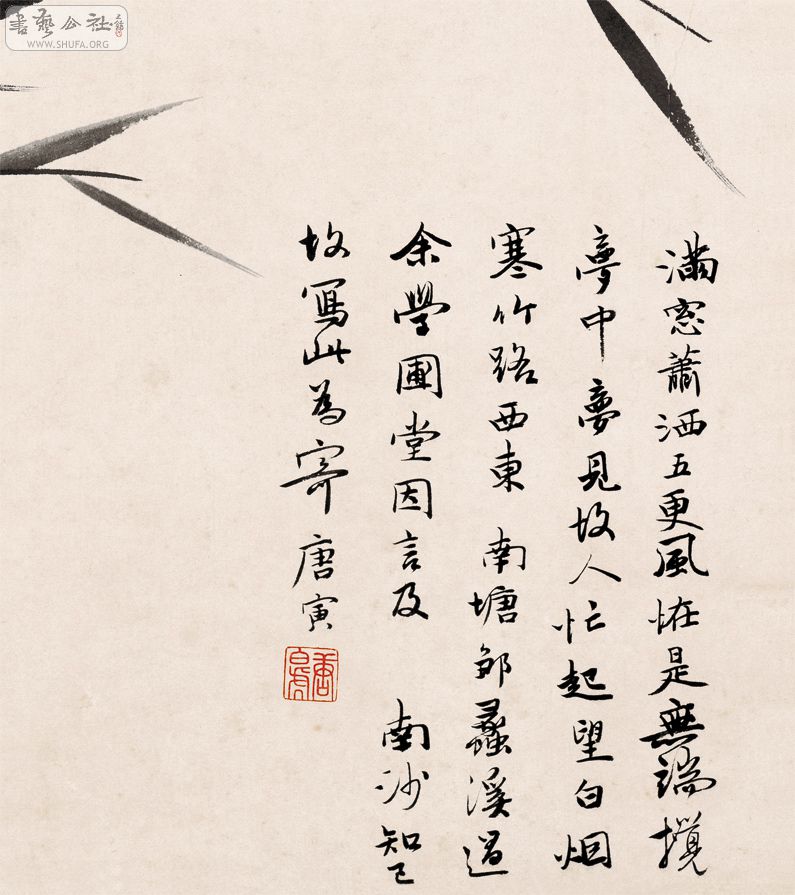 書藝公社
WWW.SHUFA.ORG
滿窓蕭洒五更風恠是無端攪
夢中夢見故人忙起望白烟
寒竹路西東 南塘邹蠡溪過
余學圃堂因言及 南沙知己
故寫此為寄 唐寅
唐白虎